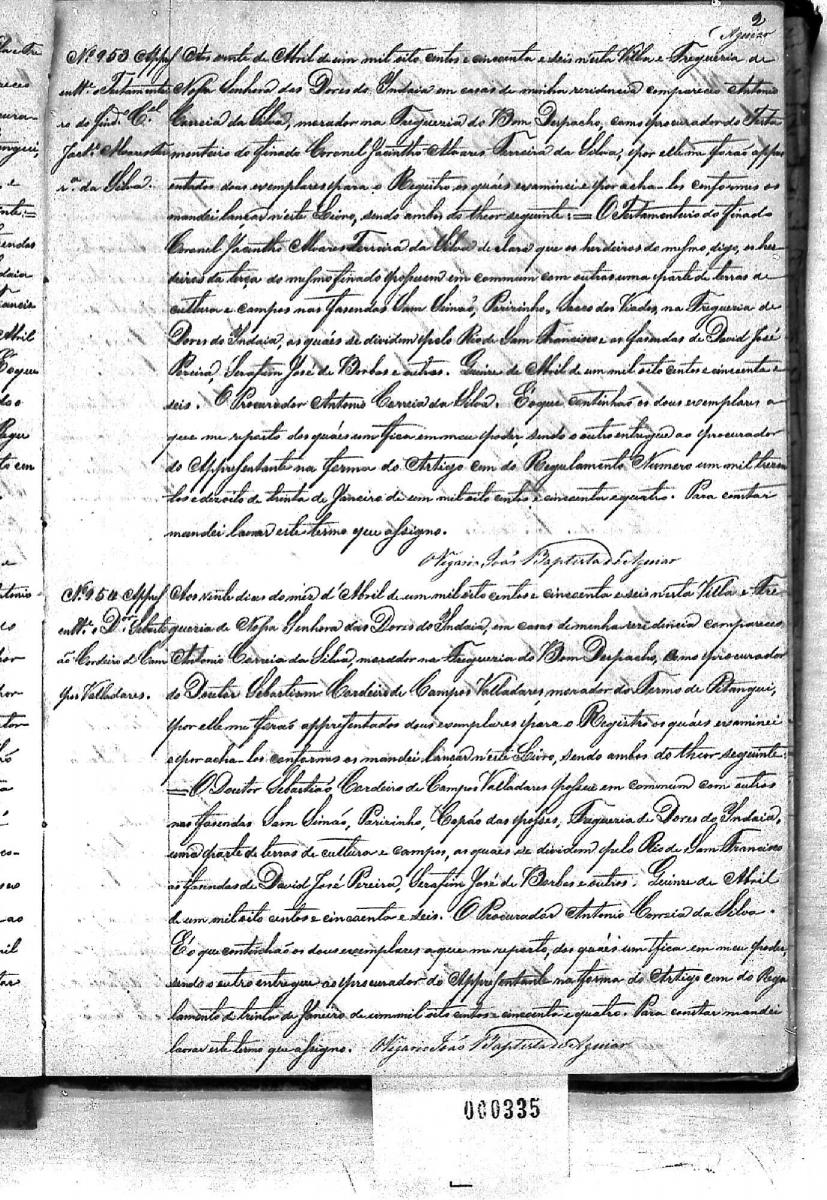 2
Aguiar
Nº 953 Appres
entte o Testamentei
ro do find. Cel
Jactho Alvares Fer
ra da Silva.
Aos vinte de Abril de um mil oito centos e cincoenta e seis n'esta Villa e Freguesia de
Nossa Senhora das Dores do Indaiá em casas de minha residencia compareceo Antonio
Correia da Silva, morador na Freguesia do Bom Despacho, como procurador do Testa
menteiro do finado Coronel Jacintho Alvares Ferreira da Silva, e por elle me forão appre
sentados dous exemplares para o Registro os quáes examinei e por acha-los conformes os
mandei lançar n'este Livro, sendo ambos do theor seguinte:= O Testamenteiro do finado
Coronel Jacintho Alvares Ferreira da Silva declara que os herdeiros do mesmo, digo, os her-
deiros da terça do mesmo finado possuem em commun com outros uma parte de terras de
cultura e campos nas fasendas Sam Simão, Parizinho, Sacco dos Viados, na Freguesia de
Dores do Indaiá, as quáes se dividem pelo Rio de Sam Francisco e as fasendas de David José
Pereira, Serafim José de Borbas e outros. Quinze de Abril de um mil oito centos e cincoenta e
seis. O Procurador Antonio Correia da Silva. É o que continhão os dous exemplares a
que me reporto dos quáes um fica em meu poder, sendo o outro entregue ao procurador
do Appresentante na forma do Artigo cem do Regulamento Numero um mil trezen
tos e dezoito de trinta de Janeiro de um mil oito centos e cincoenta e quatro. Para constar
mandei lavrar este termo que assigno.
O Vigario João Baptista d'Aguiar
Nº 954 Appres
entte o Dor Sebasti
ão Cordeiro de Cam
pos Valladares.
Aos vinte dias do mez d'Abril de um mil oito centos e cincoenta e seis n'esta Villa e Fre
guesia de Nossa Senhora das Dores do Indaiá, em casas de minha residencia compareceo
Antonio Correia da Silva, morador na Freguesia do Bom Despacho, como procurador
do Doutor Sebastiam Cordeiro de Campos Valladares, morador do Termo de Pitangui,
por elle me forão appresentados dous exemplares para o Registro os quáes examinei
e por acha-los conformes os mandei lançar n'este Livro, sendo ambos do theor seguinte:
= O Doutor Sebastião Cordeiro de Campos Valladares possue em commum com outros
nas fasendas Sam Simão, Parizinho, Capão das posses, Freguesia de Dores do Indaiá,
uma parte de terras de cultura e campos, as quáes se dividem pelo Rio de Sam Francisco
as fasendas de David José Pereira, Serafim José de Borbas e outros. Quinze de Abril
de um mil oito centos e cincoenta e seis. O Procurador Antonio Correia da Silva.
É o que continhão os dous exemplares a que me reporto, dos quáes um fica em meu poder,
sendo o outro entregue ao procurador do Appresentante na forma do Artigo cem do Regu
lamento de trinta de Janeiro de um mil oito centos e cincoenta e quatro. Para constar mandei
lavrar este termo que assigno. O Vigario João Baptista d'Aguiar
000335